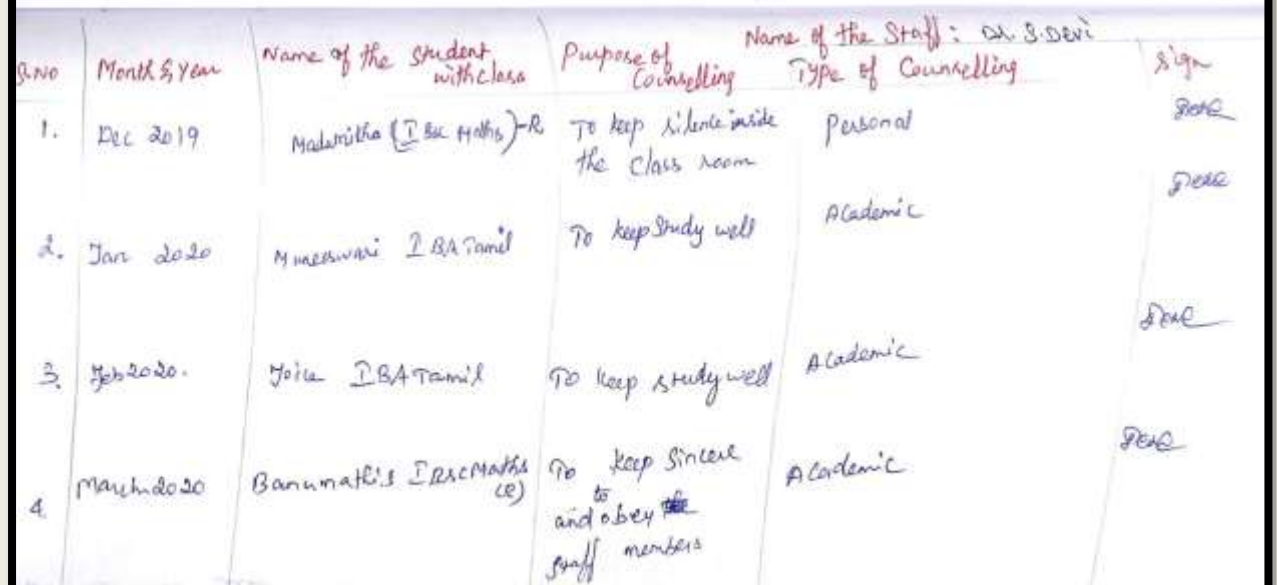 Name of the Staff: Dr. S. Devi
S.NO Month & Year Name of the Student with class Purpose of Counselling Type of Counselling Sign
1. Dec 2019 Madumitha (I BSc Maths)-R To keep silence inside the class room Personal
2. Jan 2020 Muneeswari I BA Tamil To keep Study well Academic
3. Feb 2020. Joice I BA Tamil To keep study well Academic
4. March 2020 Banumathi.S I BSC Maths (R) To keep Sincere and to obey staff members Academic